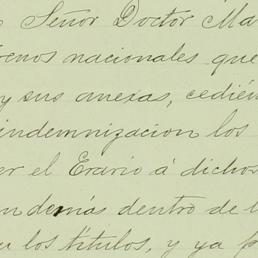 Señor Doctor Ma
renos nacionales que
y sus anexas, cedién
indemnizacion los
er el Erario á dichos
ndemás dentro de l
los títulos, y ya p